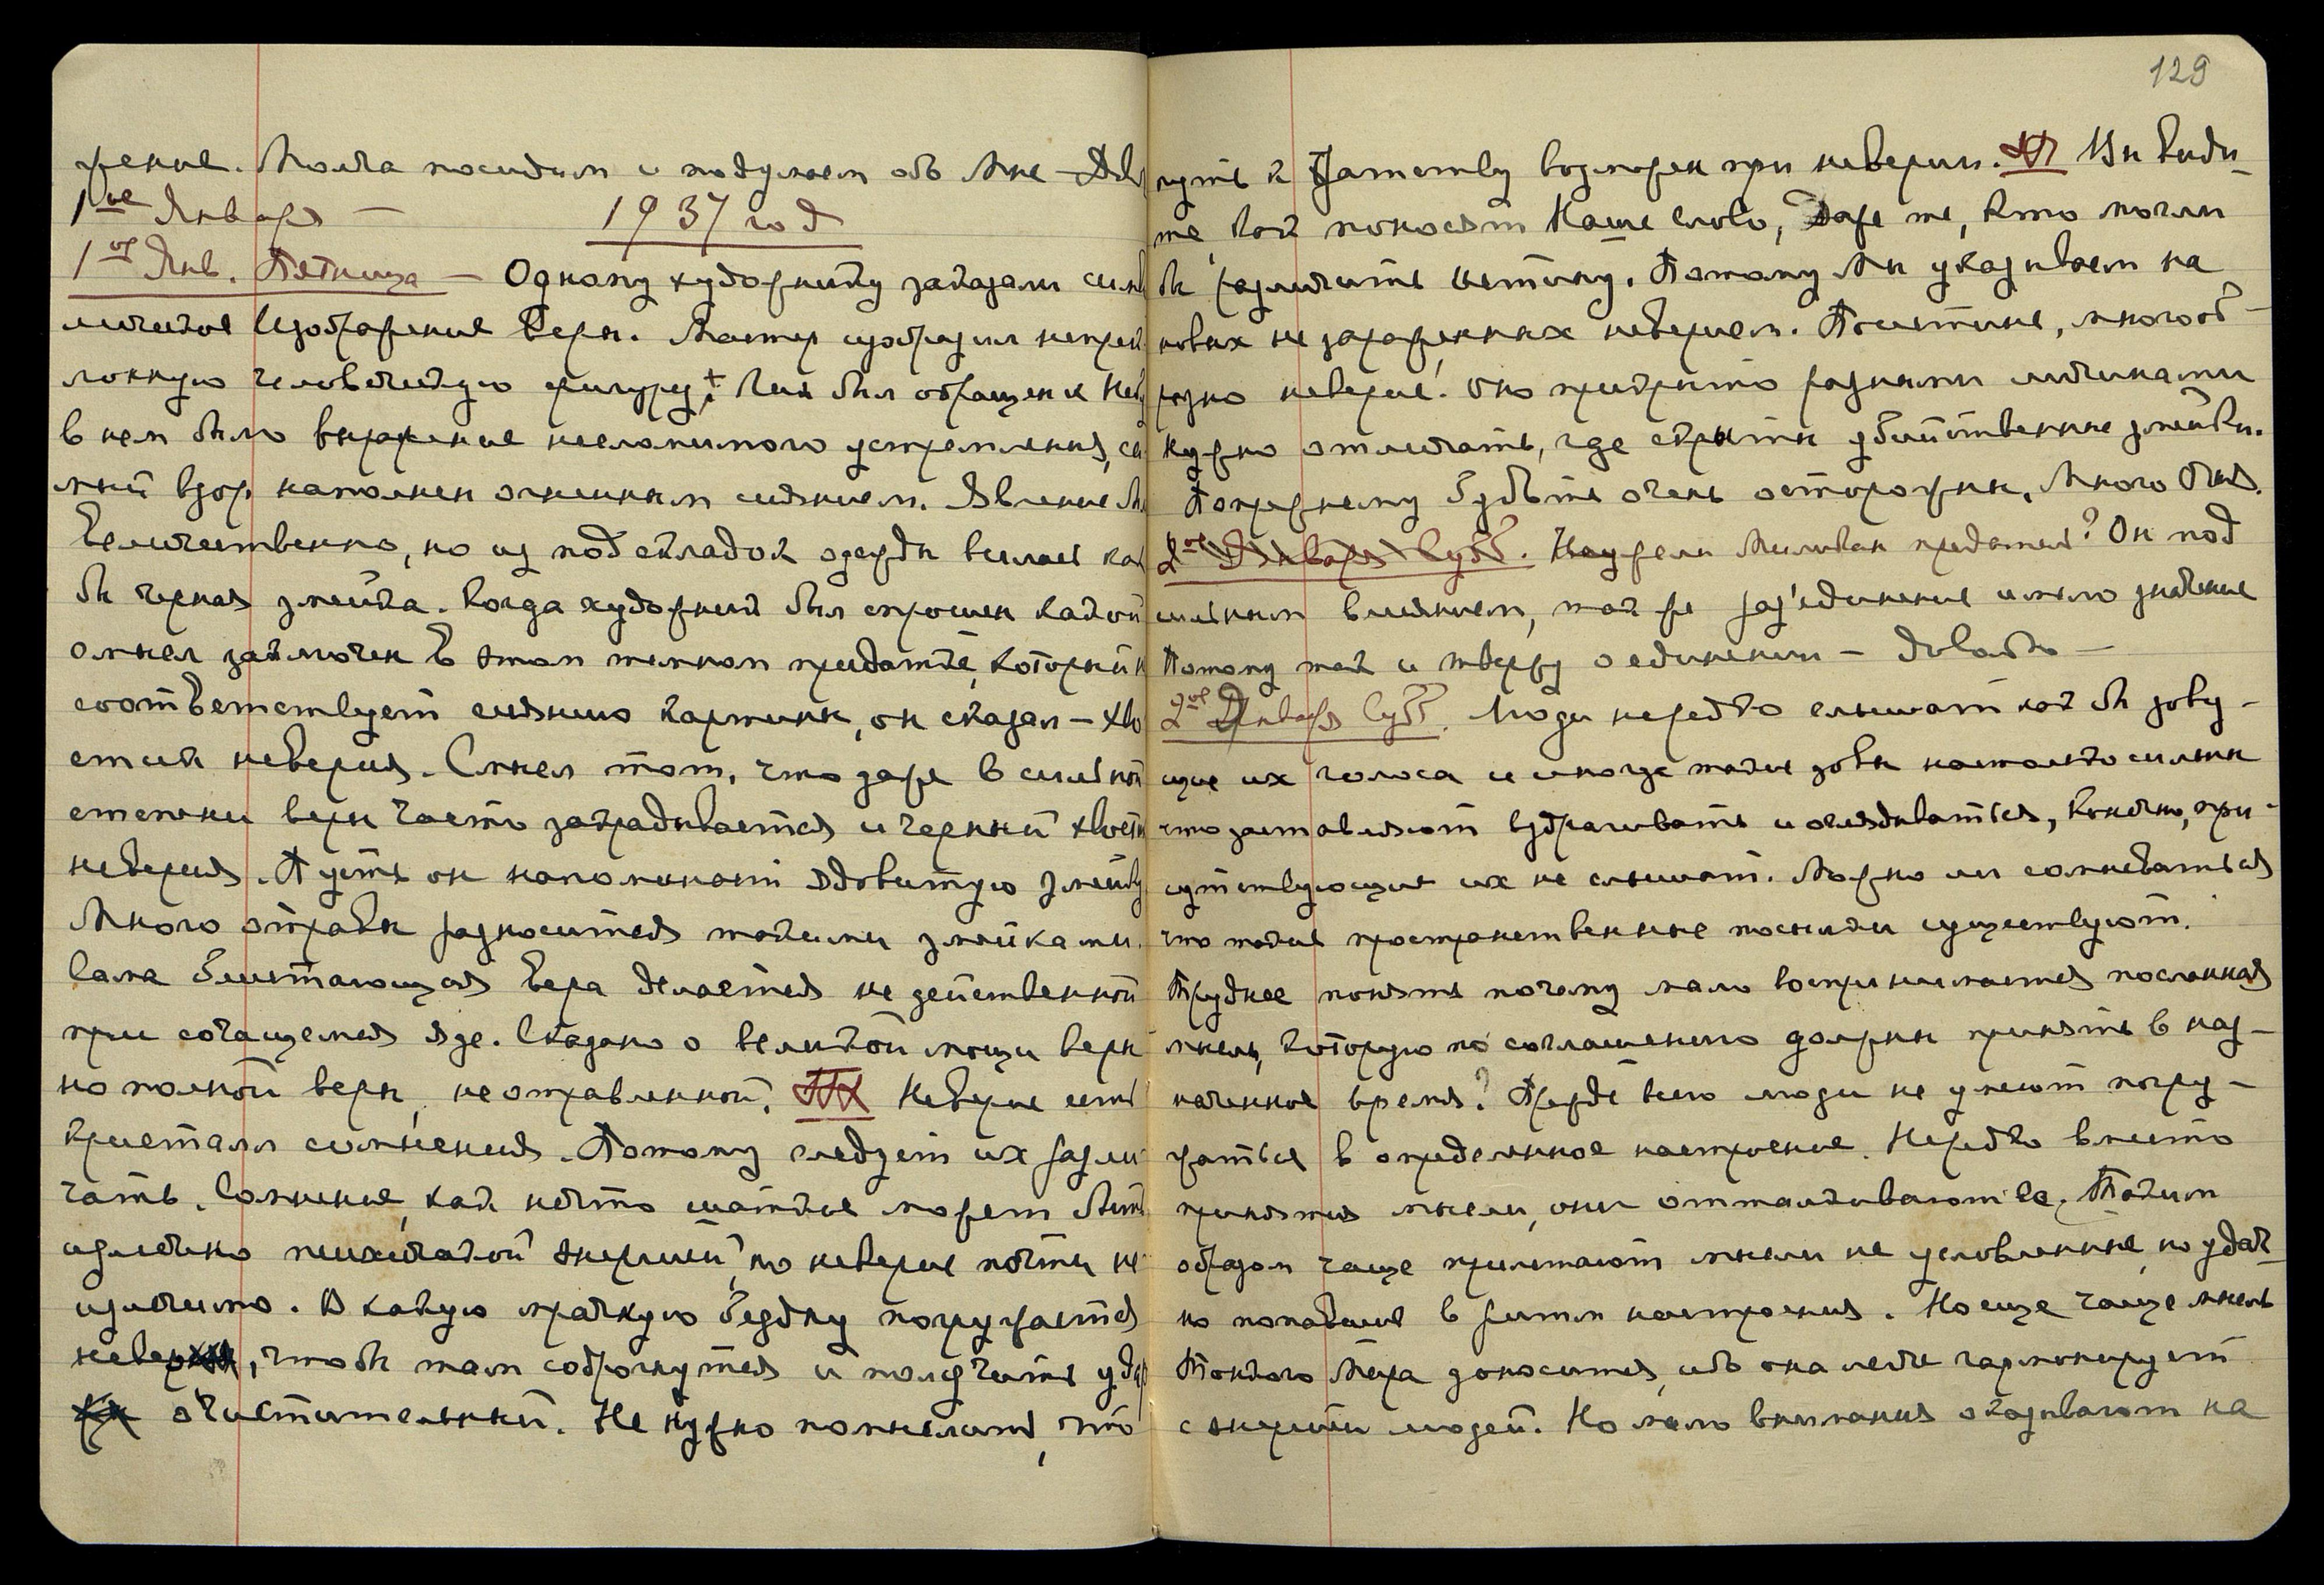 жение. Молча посидим и подумаем обо Мне –
1ое Января – 1937 год
1ое Янв. Пятница – Одному художнику заказали сим
лическое Изображение Веры. Мастер изобразил непрек
лонную человеческую фигуру, Лик был обращен к Небу
в нем было выражение несломимого устремления, са
мый взор наполнен огненным сиянием. Явление бы
Величественно, но из под складок одежды вилась как
бы черная змейка. Когда художник был спрошен какой
смысл заключен в этом темном придатке, который не
соответствует сиянию картины, он сказал – хво
стик неверия. Смысл тот, что даже в сильной
степени веры часто закрадывается и черный хвостик
неверия. Пусть он напоминает ядовитую змейку
Много отравы разносится такими змейками.
Сама блистающая Вера делается не действенной
при сочащемся яде. Сказано о великой мощи веры
но полной веры, не отравленной. Неверие есть
кристалл сомнения. Потому следует их разли
чать. Сомнение, как нечто шаткое может быть
излечено психической энергией, но неверие почти не
излечимо. В какую мрачную бездну погружается
неверие, чтобы там содрогнуться и получить удар
очистительный. Не нужно помыслить, что
129
путь к Братству возможен при неверии. Вы види-
те, как поносят Наше Слово, Даже те, кто могли
бы различить истину. Потому Мы указываем на
новых не зараженных неверием. Поистине, многооб-
разно неверие. Оно прикрыто разными личинами
нужно отличать, где скрыты убийственные змейки.
Попрежнему будьте очень осторожны. Много Огня.
2ое Января Субб. Неужели Милюков предатель? Он под
сильным влиянием, так же раз'единение имело значение
Потому так и твержу о единении – довольно –
2ое Января Субб. Люди нередко слышат как бы зову-
щие их голоса и иногда такие зовы настолько сильны
что заставляют вздрагивать и оглядываться, Конечно, при-
сутствующие их не слышат. Можно ли сомневаться
что такие пространственные посылки существуют.
Труднее понять почему мало воспринимается посланная
мысль, которую по соглашению должны принять в наз-
наченное время? Прежде всего люди не умеют погру-
жаться в определенное настроение. Нередко вместо
принятия мысли, они отталкивают ее. Таким
образом чаще прилетают мысли не условленные, но удач-
но попавшие в ритм настроения. Но еще чаще мысль
Тонкого Мира доносится, ибо она легче гармонирует
с энергией людей. Но мало внимания оказывают на